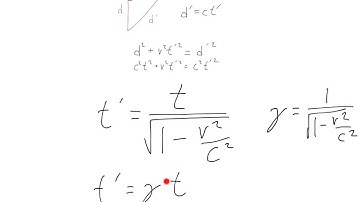 d d' d' = ct'
d² + v²t'² = d'²
c²t² + v²t'² = c²t'²
t' = t / √(1 - v²/c²) γ = 1 / √(1 - v²/c²)
t' = γ t